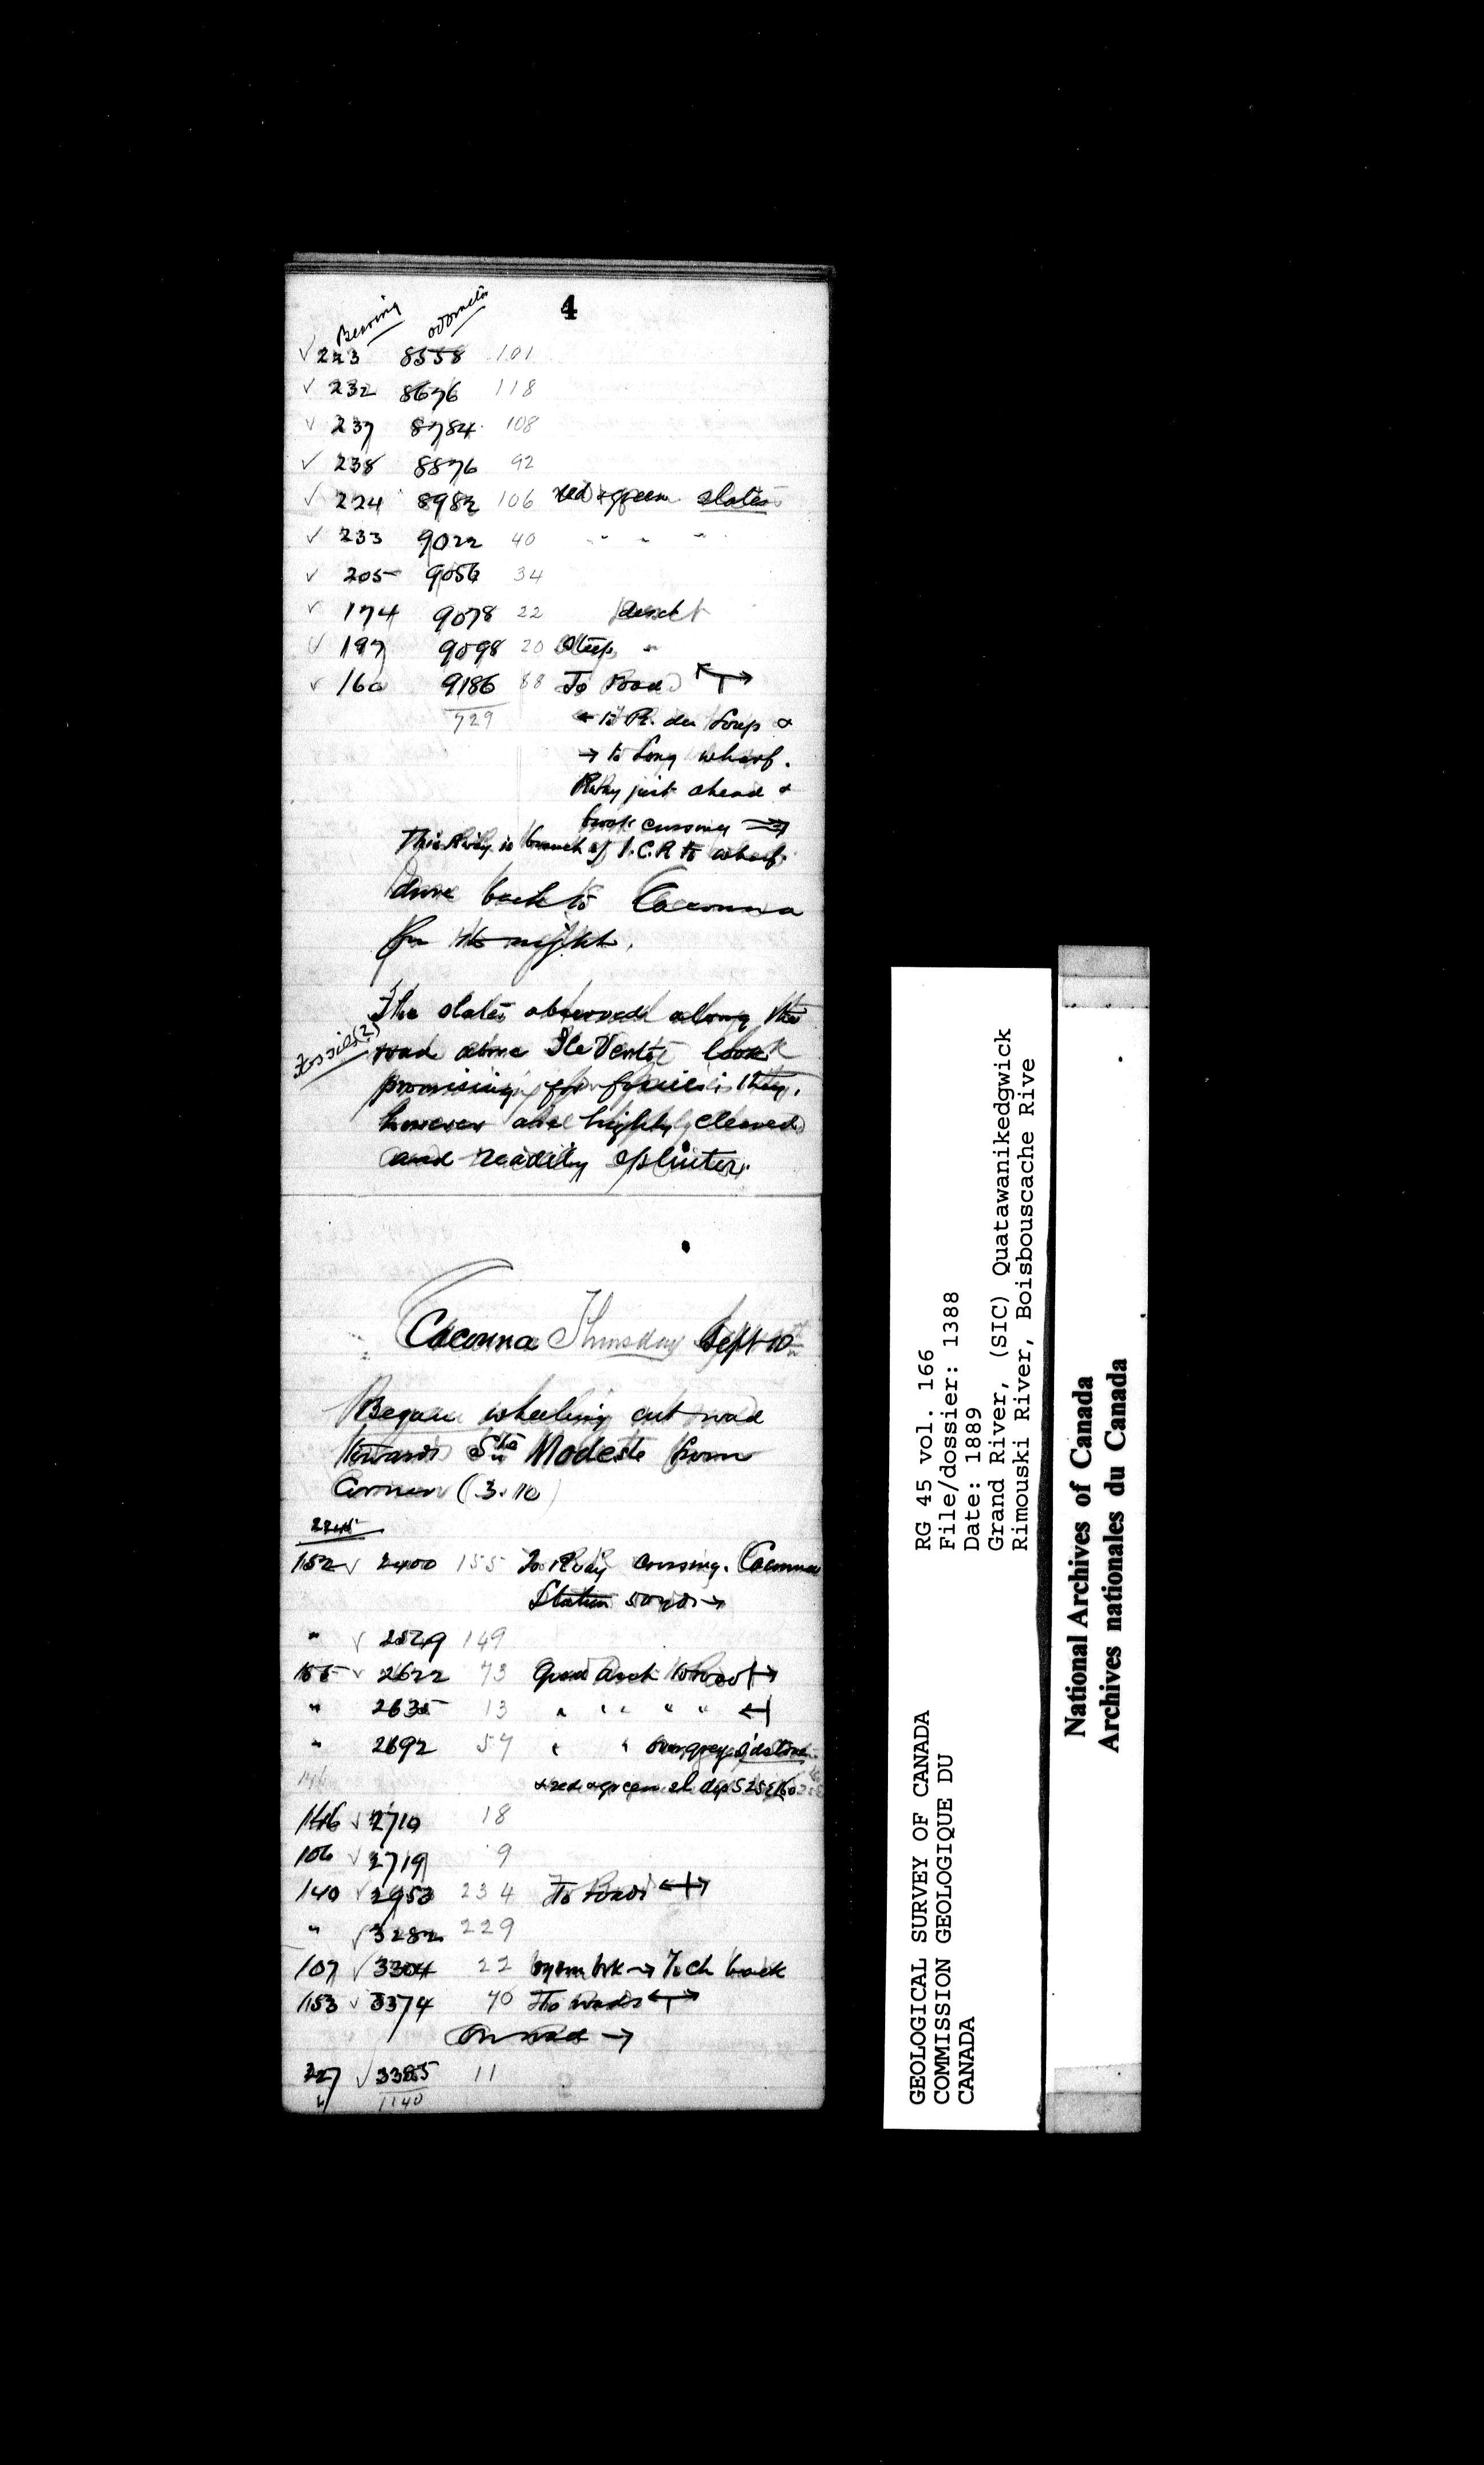 4
Bearing odometer
✓ 223 8558 101
✓ 232 8676 118
✓ 237 8784 108
✓ 238 8876 92
✓ 224 8982 106 red & green slates
✓ 233 9022 40 " " "
✓ 205 9056 34
✓ 174 9078 22
✓ 197 9098 20 Steep "
✓ 160 9186 88 To Road
729 ← to R. du Loup &
→ to long wharf.
RWay just ahead &
crossing
This RWay is branch of I.C.R to wharf.
drive back to Cacouna
for the night.
The slates observed along the
Fossils(?)
road above Ile Verte look
promising for fossils; they,
however are highly cleaved
and readily splinter.
Cacouna Thursday Sept 10th
Began wheeling cut road
towards Ste Modeste from
Corner (3.10)
2245
152 ✓ 2400 155 To RWay crossing. Cacouna
Station 50 yds →
" ✓ 2549 149
155 ✓ 2622 73 Grad to Road →
" 2635 13 " " " " ←
" 2692 57 " " over grey
& red & green sl dip S25E
146 ✓ 2710 18
106 ✓ 2719 9
140 ✓ 2953 234 To Road ↔
" ✓ 3282 229
107 ✓ 3304 22 brk → 7 ch back
153 ✓ 3374 70 To roads ↔
On road →
227 ✓ 3385 11
" 1140
GEOLOGICAL SURVEY OF CANADA
COMMISSION GEOLOGIQUE DU
CANADA
RG 45 vol. 166
File/dossier: 1388
Date: 1889
Grand River, (SIC) Quatawanikedgwick
Rimouski River, Boisbouscache Rive
National Archives of Canada
Archives nationales du Canada